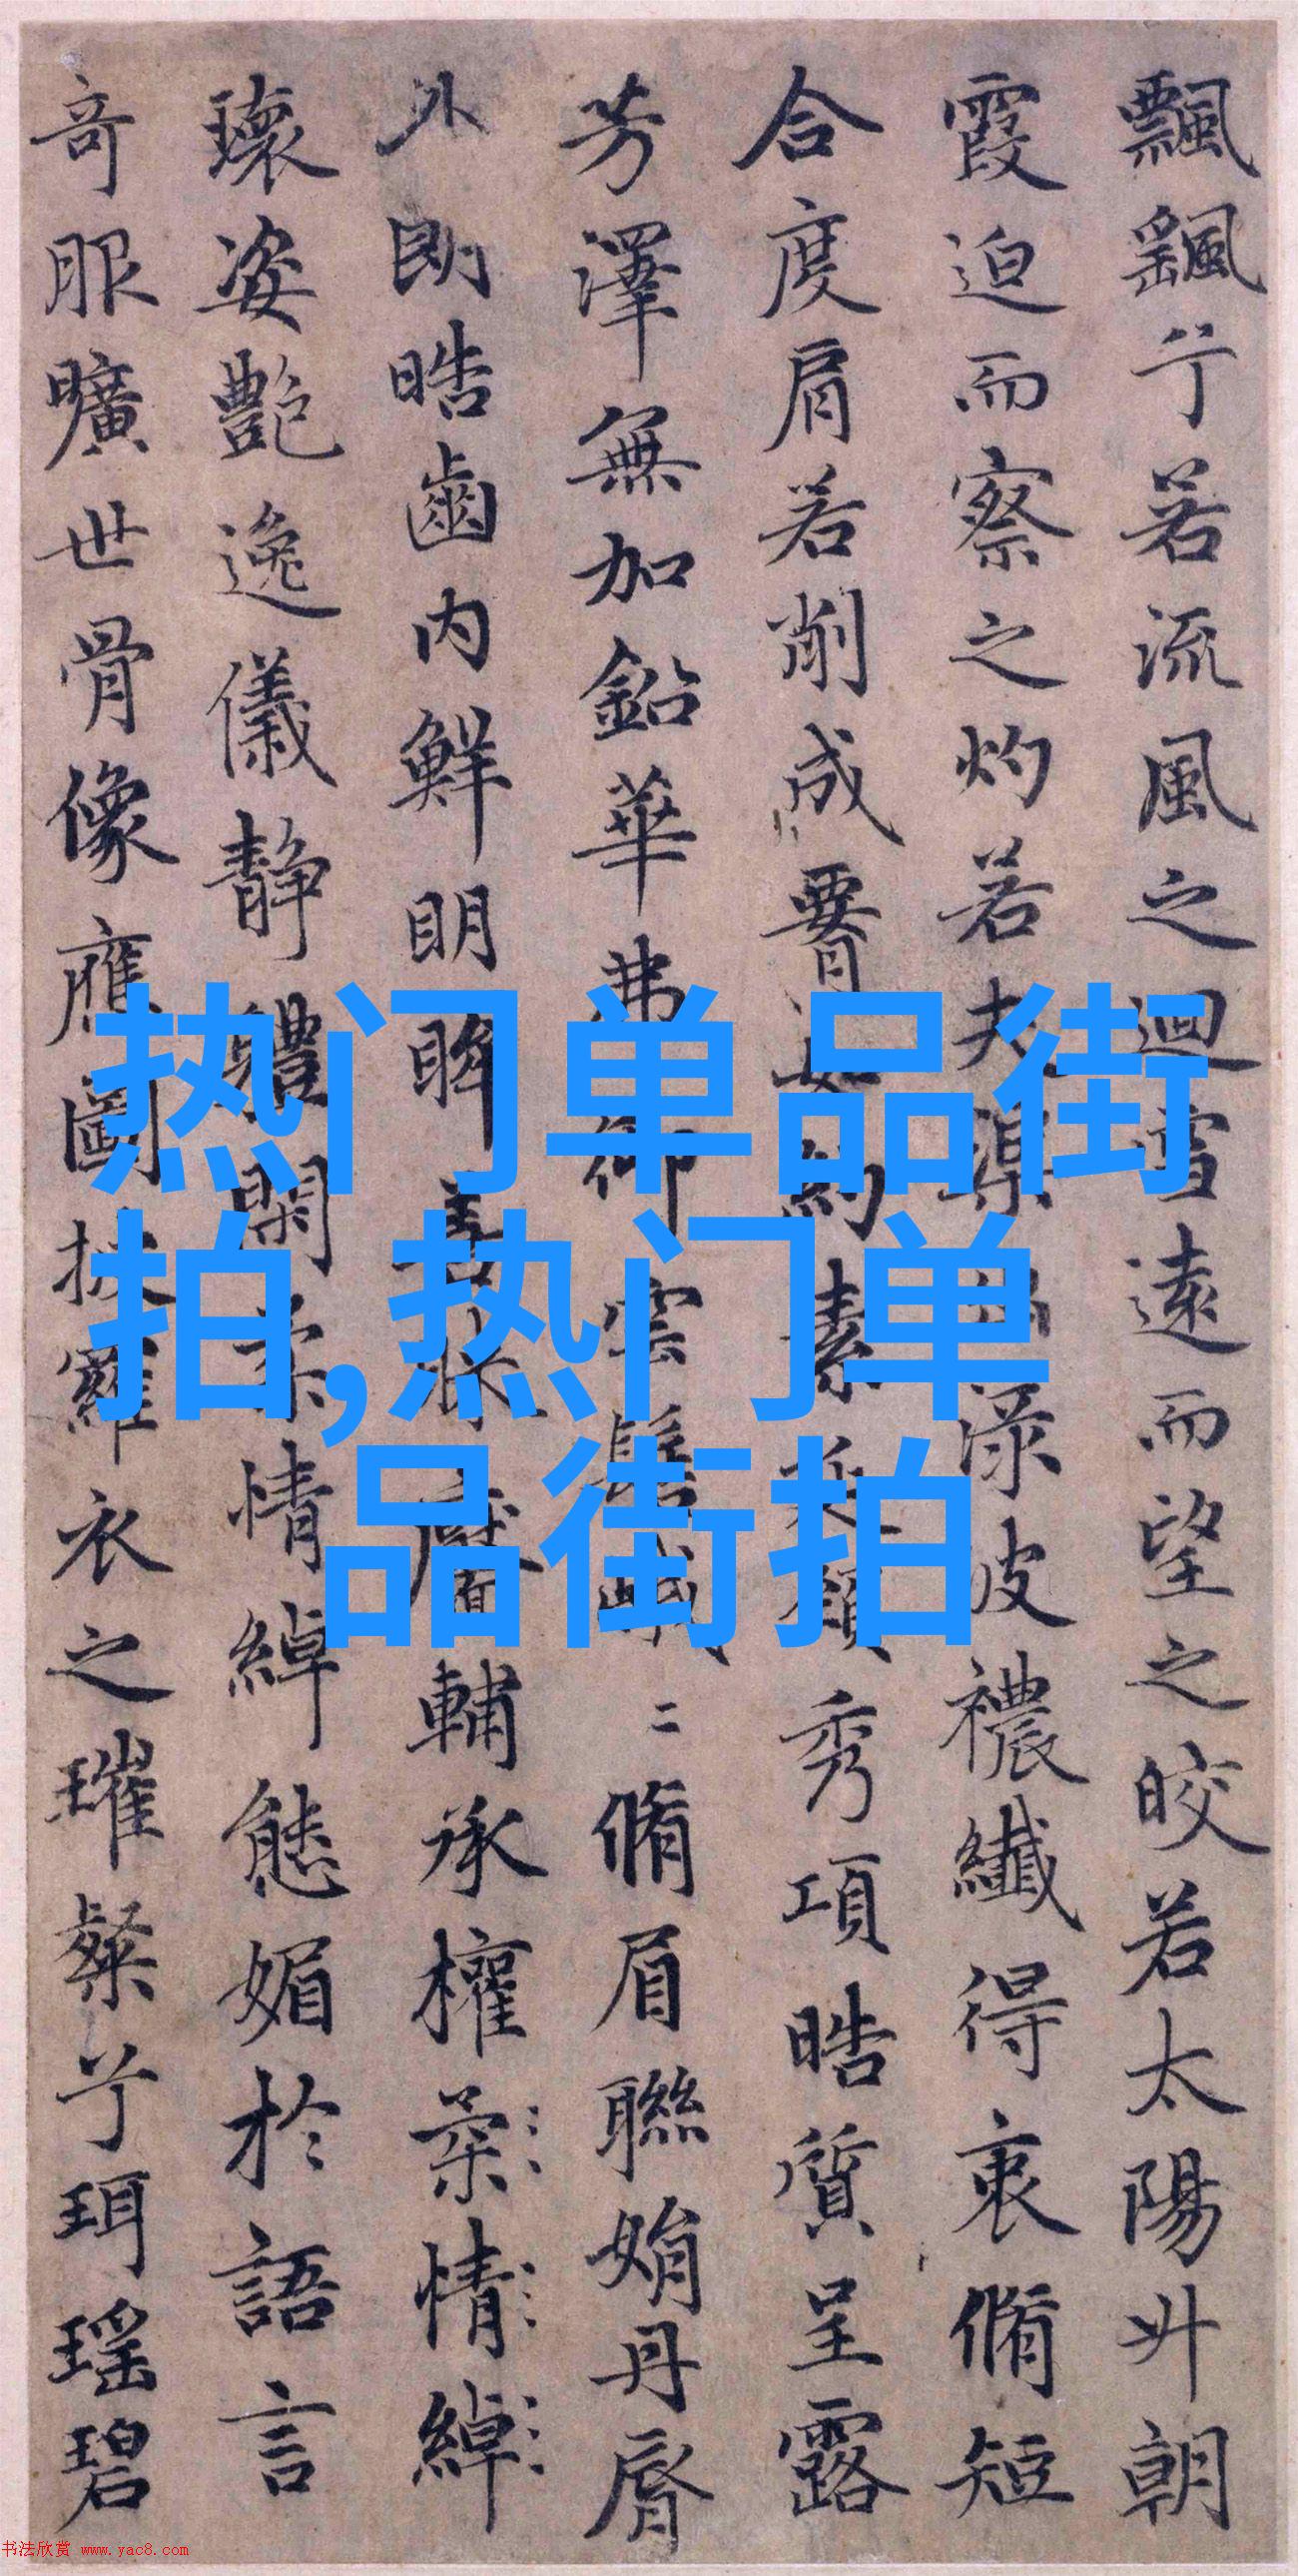 飄颻兮若流風之迴雪遠而望之皎若太陽升朝
霞迫而察之灼若夫渠出渌波襛纖得衷脩短
合度肩若削成如約素延頸秀項晧質呈露
芳澤無加鉛華弗御雲髻峨二脩眉聯娟丹脣
外朗晧齒内鮮明眸善睞靨輔承權柔情綽
瓌姿艷逸儀静體閑柔情綽態媚於語言
奇服曠世骨像應圖披羅衣之璀粲兮珥瑶碧
热门单品街
拍,热门单
品街拍
书法欣赏 www.yac8.com